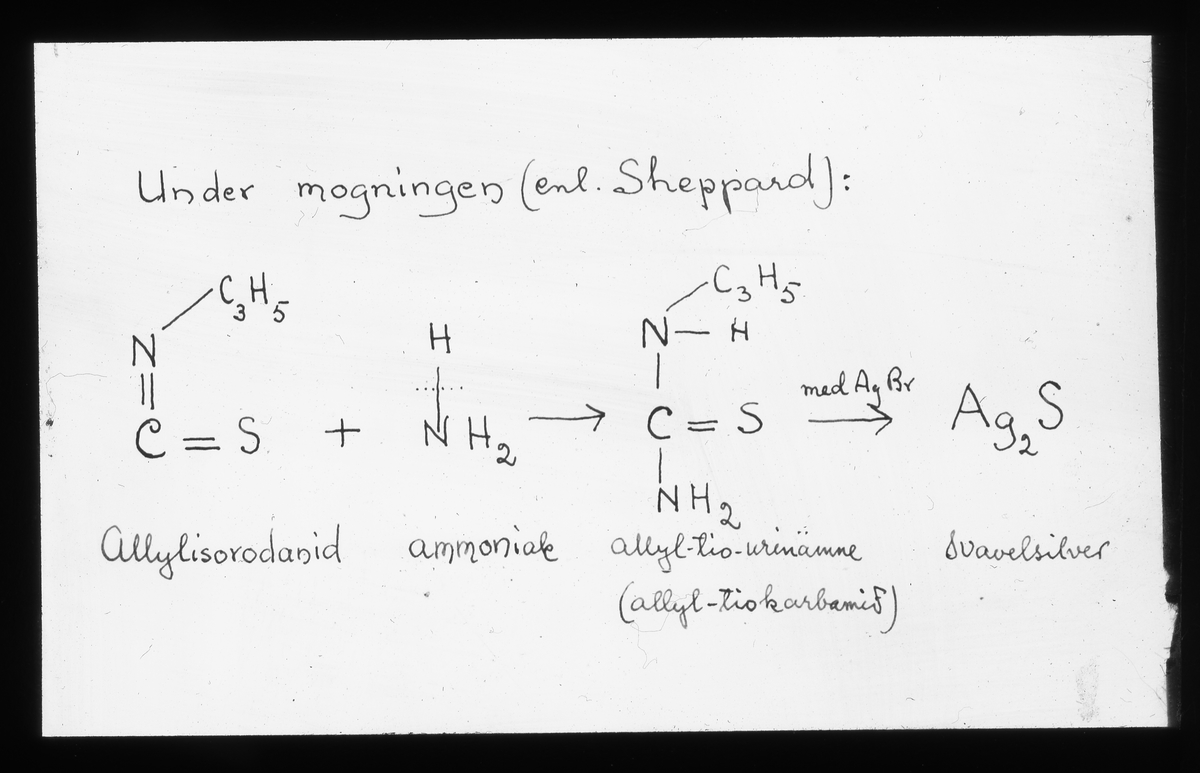 Under mogningen (enl. Sheppard):
C3H5
N
C = S
+
H
NH2
→
C3H5
N — H
C = S
NH2
med AgBr
→
Ag2S
Allylisorodanid
ammoniak
allyl-tio-urinämne
(allyl-tiokarbamid)
Svavelsilver